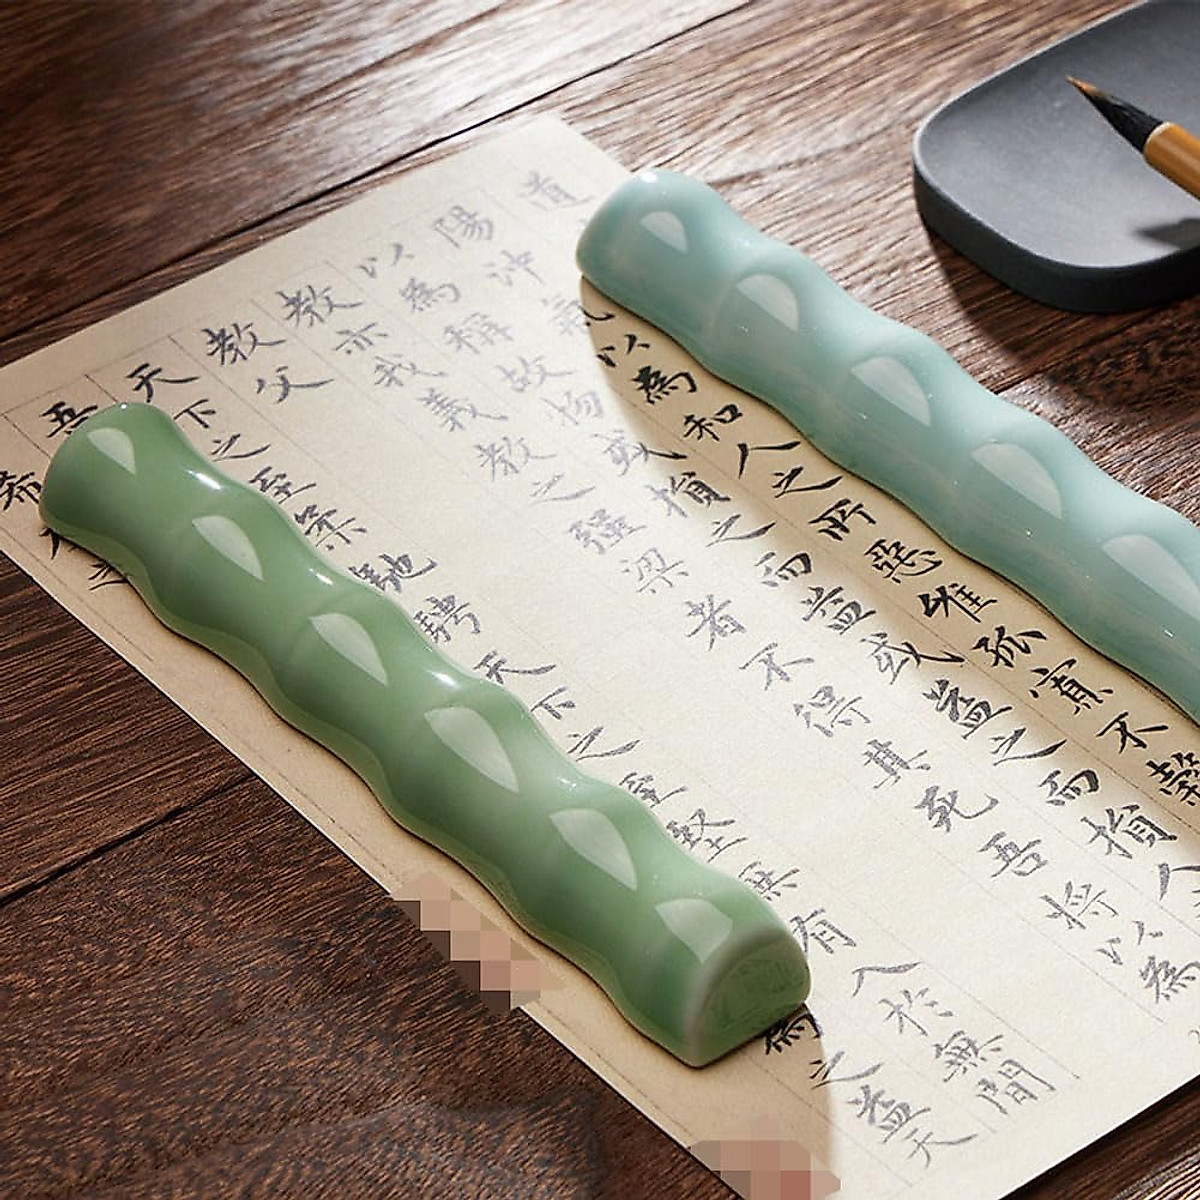 道
陽沖氣以為和人之所惡惟孤寡不穀
以為稱故物或損之而益或益之而損人
教亦我義教之強梁者不得其死吾將以為
教父
天下之至柔馳騁天下之至堅無有入於無間
吾為之益天
希之